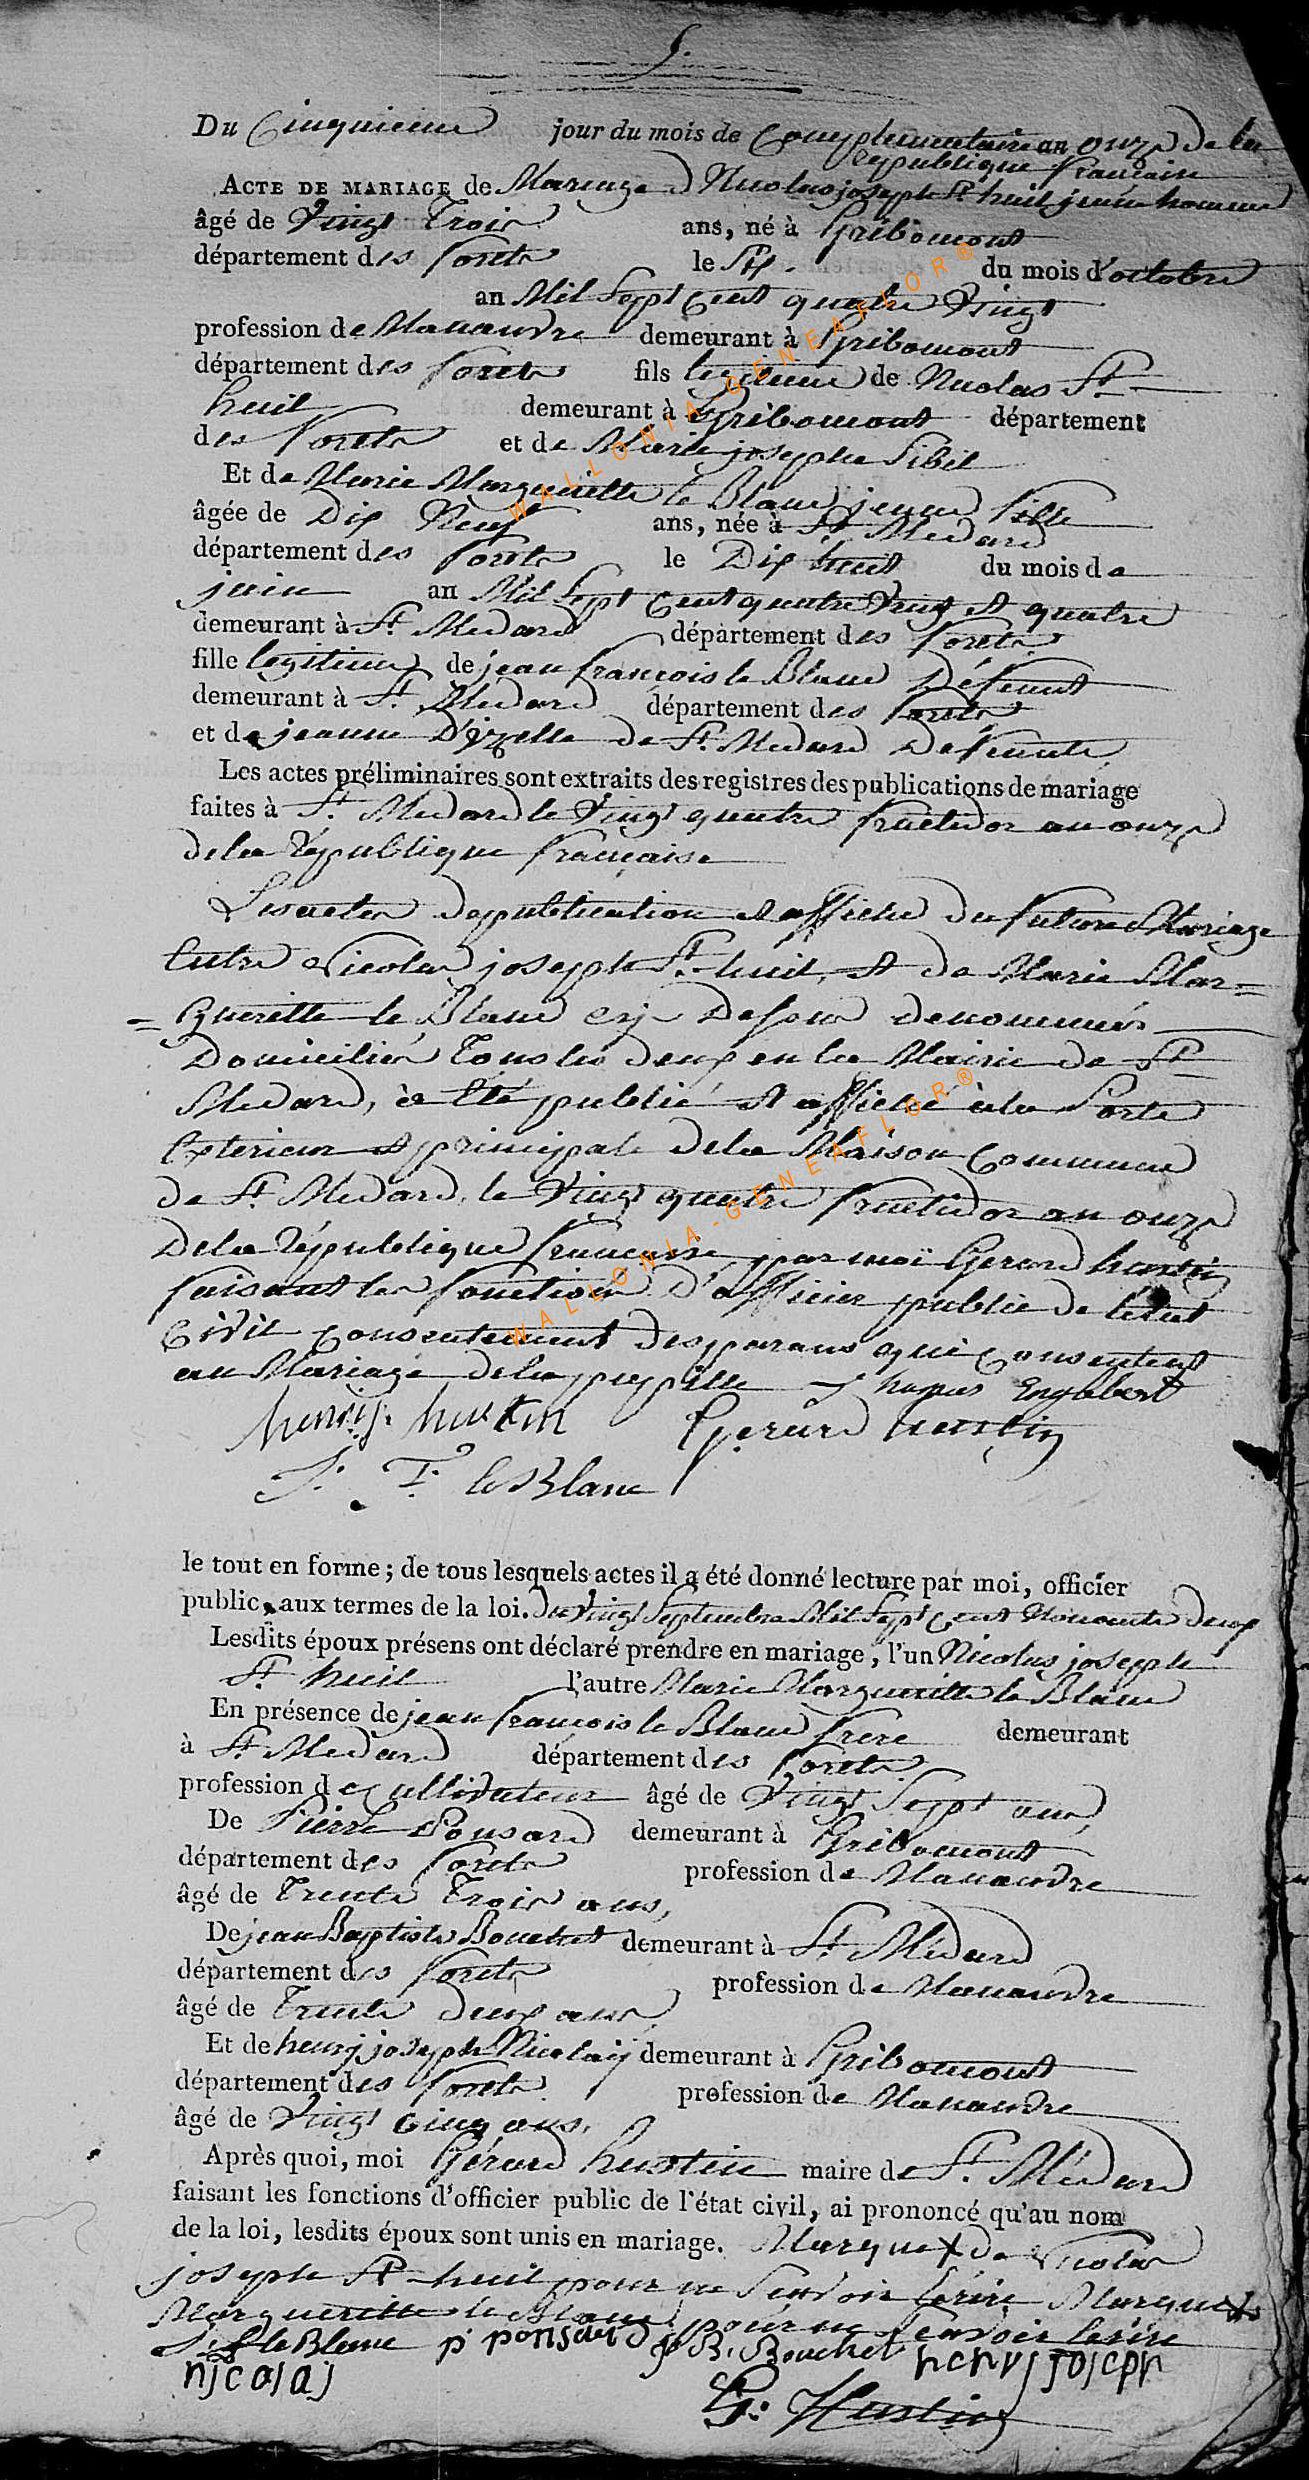 5.
Du Cinquieme jour du mois de Complementaire an onze de la
republique francaise
ACTE DE MARIAGE de Mariage d Nicolas joseph St huil jeune homme
âgé de Vingt Trois ans, né à Gribomont
département des forets le Six du mois d'octobre
an Mil Sept Cent quatre Vingt
profession de Manœuvre demeurant à Gribomont
département des forets fils legitime de Nicolas St
huil demeurant à Gribomont département
des forets et de Marie josephe Sibil
Et de Marie Margueritte le Blanc jeune fille
âgée de Dix Neuf ans, née à St Medard
département des forets le Dix huit du mois de
juin an Mil Sept Cent quatre Vingt et quatre
demeurant à St Medard département des forets
fille legitime de jean francois le Blanc Défunt
demeurant à St Médard département des forets
et de jeanne D'izelle de St Medard Defunte
Les actes préliminaires sont extraits des registres des publications de mariage
faites à St Medard le Vingt quatre fructidor an onze
de la république francaise
Les actes de publication et affiche du futur Mariage
Entre Nicolas joseph St huil, et de Marie Mar=
=gueritte le Blanc cy Dessous denommés
Domiciliés Tous les deux en la Mairie de St
Medard, à été publié et affiché à la Porte
Exterieur et principale de la Maison Commune
de St Medard, le Vingt quatre fructidor an onze
De la république francaise, par moi Gerard hustin
faisant les fonctions D'officier public de l'etat
Civil consentement des parans qui consentent
au Mariage de la pupille Engelbert
henrij hustin Gerard hustin
J. F. le Blanc
le tout en forme; de tous lesquels actes il a été donné lecture par moi, officier
public, aux termes de la loi. du Vingt Septembre Mil Sept Cent Nonante deux
Lesdits époux présens ont déclaré prendre en mariage, l'un Nicolas joseph
St huil l'autre Marie Margueritte le Blanc
En présence de jean francois le Blanc frere demeurant
à St Medard département des forets
profession de Cultivateur âgé de Vingt Sept ans,
De Pierre Ponsard demeurant à Gribomont
département des forets profession de Manœuvre
âgé de Trente Trois ans,
De jean Baptiste Bouchet demeurant à St Médard
département des forets profession de Manœuvre
âgé de Trente deux ans,
Et de henrij joseph Nicolaij demeurant à Gribomont
département des forets profession de Manœuvre
âgé de Vingt Cinq ans,
Après quoi, moi Gérard hustin maire de St Médard
faisant les fonctions d'officier public de l'état civil, ai prononcé qu'au nom
de la loi, lesdits époux sont unis en mariage. Marque X de Nicolas
joseph St huil pour ne Scavoir Ecrire Marque X
Margueritte le Blanc pour ne Scavoir Ecrire
J. F. le Blanc p ponsard J B. Bouchet henrij josepn
njcolaj
G: Hustin
WALLONIA-GENEAFLOR®
WALLONIA-GENEAFLOR®